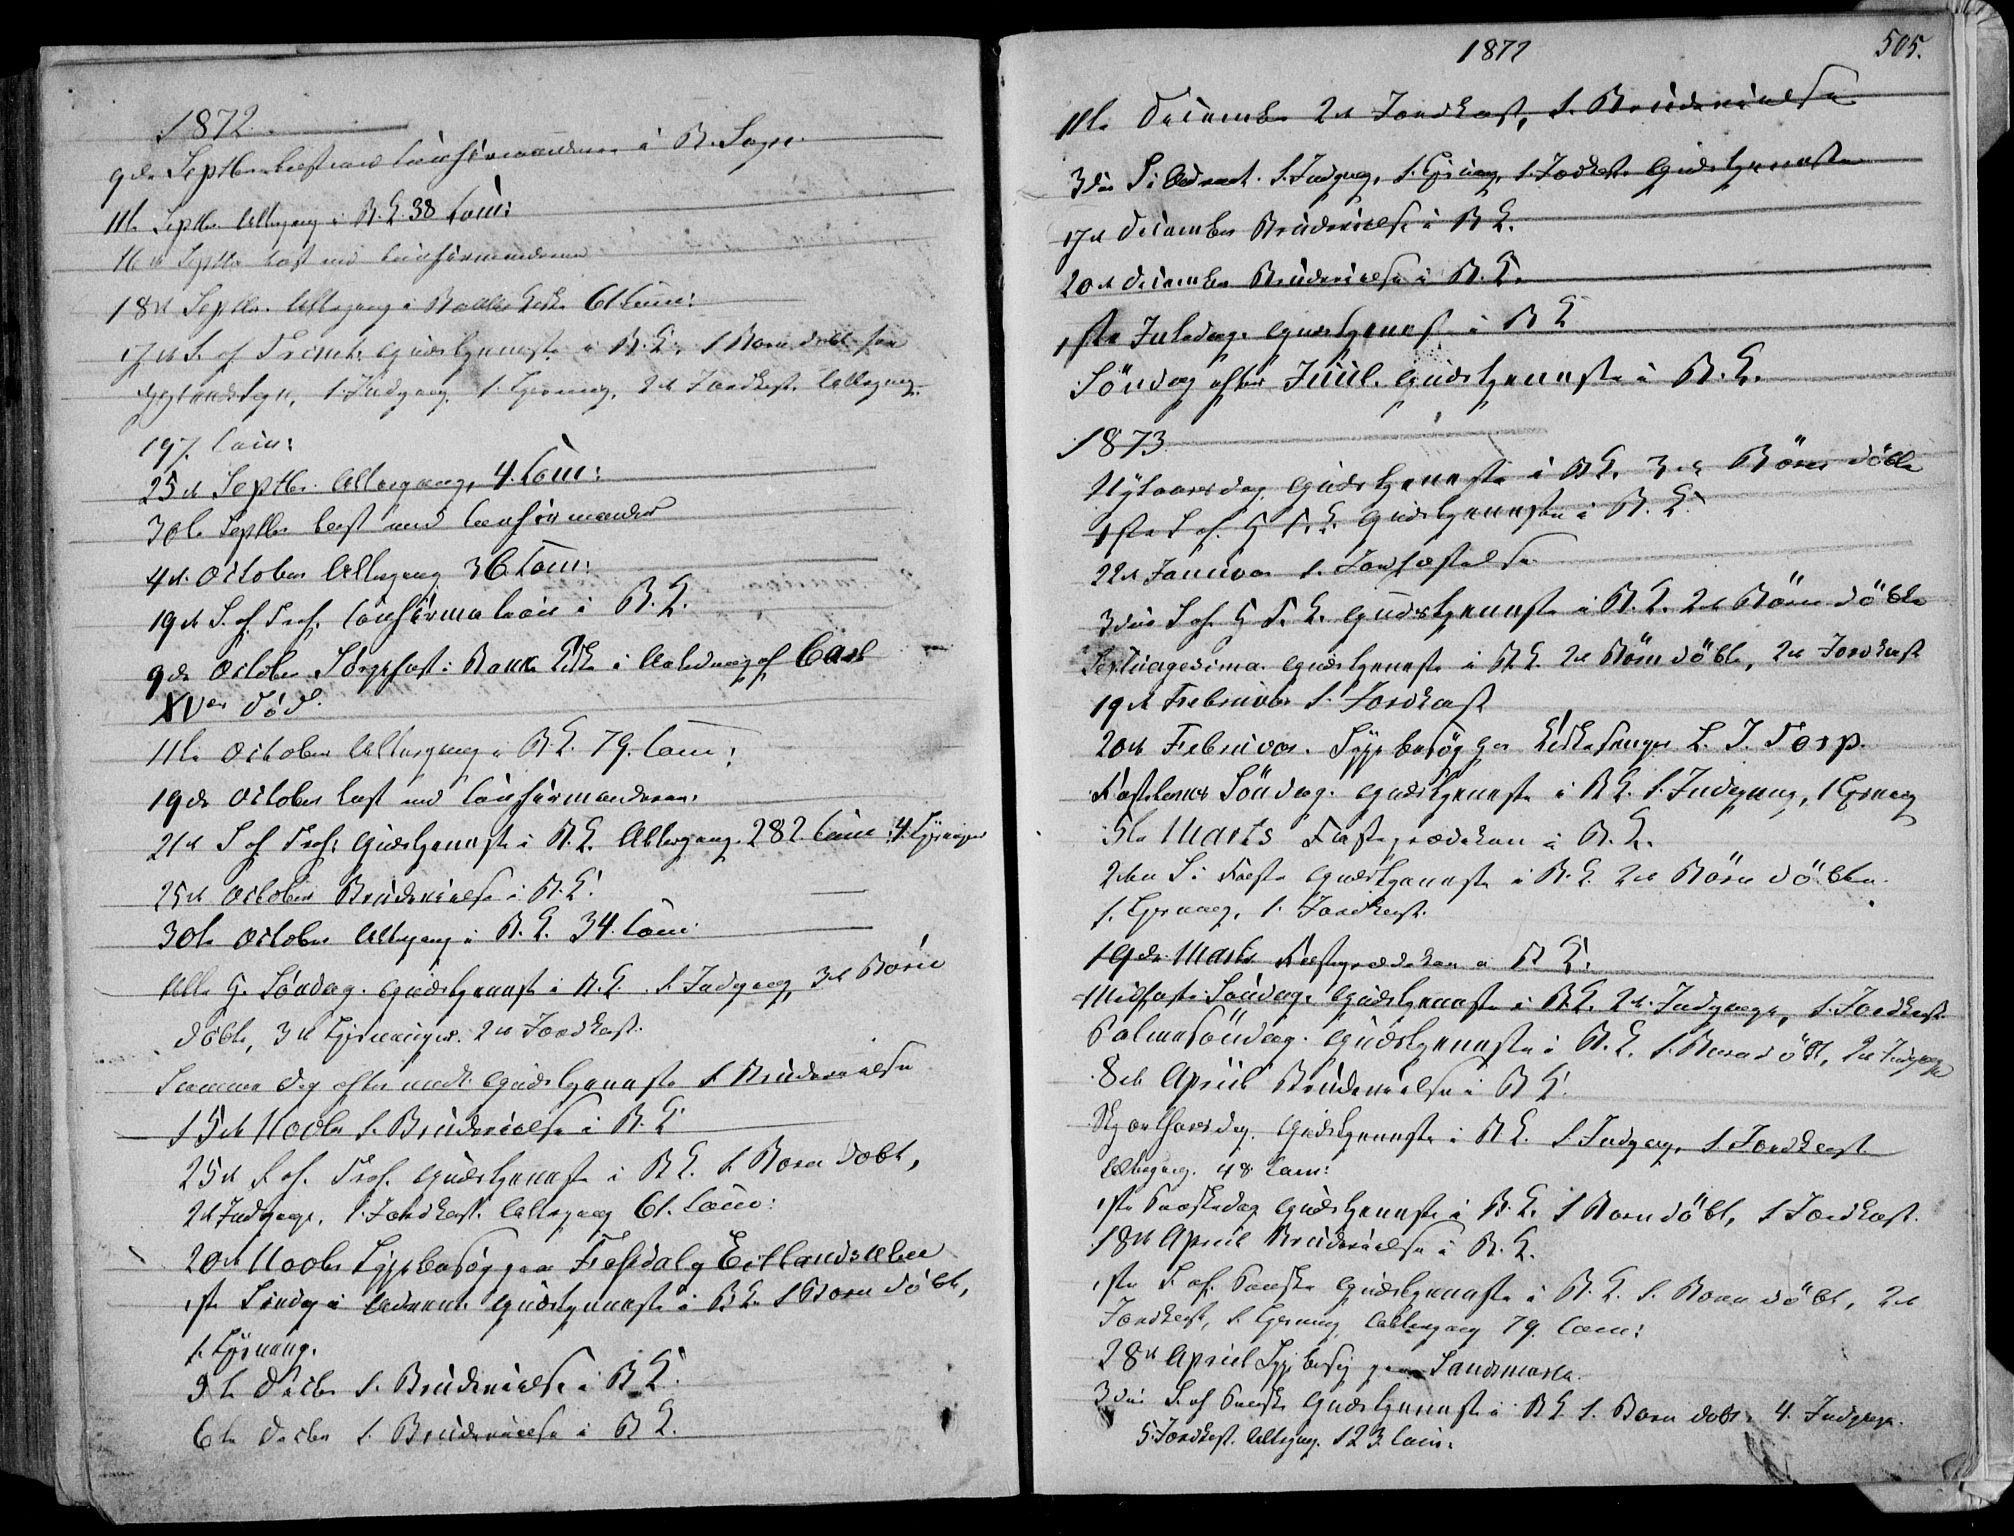 1872.
9de Septbr. læst med Confirmanderne i B. Sogn.
11te Septbr. Altergang i B. K. 38 Com:
16de Septbr læst med Confirmanderne
18de Septbr. Altergang i Bakke Kirke 61 Com:
17de S. ef. Trinit. Gudstjeneste i B. K. 1 Barn døbt fra
Sogn, 1. Indgang, 1. Lysning, 2de Jordkast. Altergang.
197. Com:
25de Septbr. Altergang, 4. Com:
30te Septbr læst med Confirmander
4de October Altergang 36 Com:
19de S. ef. Tref. Confirmation i B. K.
9de October Sørgefest i Bakke Kirke i Anledning af Carl
XVes Død.
11te October Altergang i B. K. 79. Com:
19de October læst med Confirmanderne.
21de S. ef. Tref. Gudstjeneste i B. K. Altergang 282 Com: 4. Lysninger
25de October Brudevielse i B. K.
30te October Altergang i B. K. 34. Com:
Alle H. Søndag. Gudstjeneste i B. K. 1. Indgang, 3de Børn
døbte, 3de Lysninger. 2de Jordkast.
Samme Dag efter endt Gudstjeneste 1 Brudevielse
15de Novbr 1. Brudevielse i B. K.
25de S. ef. Tref. Gudstjeneste i B. K. 1 Barn døbt,
2de Indgange, 1. Jordkast. Altergang 61. Com:
20de Novbr Sygebesøg paa Eitlandsaaen
1ste Søndag i Advent Gudstjeneste i B. K. 1 Barn døbt,
1. Lysning.
3de Decbr 1. Brudevielse i B. K.
6te Decbr 1. Brudevielse i B. K.
1872
505.
11te December 2de Jordkast, 1. Brudevielse
3die S. i Advent. 1. Indgang, 1. Lysning, 1. Jordkast. Gudstjeneste
17de December Brudevielse i B K.
20de December Brudevielse i B. K.
1ste Juledag. Gudstjeneste i B K
Søndag efter Juul. Gudstjeneste i B. K.
1873
Nytaarsdag Gudstjeneste i B K. 3de Børn døbte
1ste S. ef. H. T. K. Gudstjeneste i B. K.
22de Januar 1. Jordfæstelse
3die S. ef. H T. K. Gudstjeneste i B. K. 2de Børn døbte
Septuagesima. Gudstjeneste i B K. 2de Børn døbte, 2de Jordkast
19de Februar 1. Jordkast
20de Februar. Sygebesøg hos Kirkesanger L. T. Torp.
Fastelavns Søndag. Gudstjeneste i B K. 1. Indgang, 1 Lysning
5te Marts Fasteprædiken i B. K.
2den S. i Faste Gudstjeneste i B. K. 2de Børn døbte.
1. Lysning, 1. Jordkast.
19de Marts Fasteprædiken i B K.
Midfaste Søndag. Gudstjeneste i B. K. 2de Indgange, 1. Jordkast
Palmesøndag. Gudstjeneste i B. K. 1. Barn døbt, 2de Indgange
8de April Brudevielse i B K.
Skjærthorsdag. Gudstjeneste i B K. 1 Indgang, 1. Jordkast
Altergang. 48 Com:
1ste Paaskedag Gudstjeneste i B. K. 1 Barn døbt, 1 Jordkast.
18de April Brudevielse i B. K.
1ste S. ef. Paaske Gudstjeneste i B. K. 1. Barn døbt, 2de
Jordkast, 1. Lysning, Altergang 79. Com:
28de April Sygebesøg paa Sandsmark.
3die S. ef. Paaske Gudstjeneste i B K 1. Barn døbt, 4. Indgange.
5. Jordkast. Altergang. 123. Com: